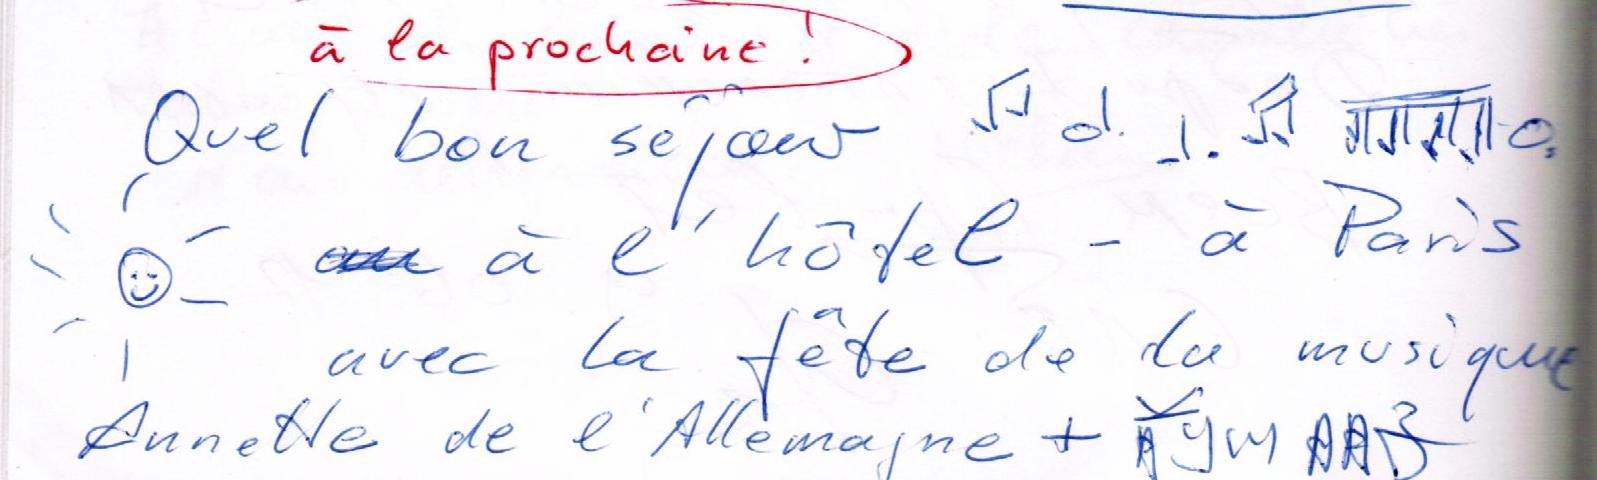 à la prochaine!
Quel bon séjour
à l'hôtel - à Paris
avec la fête de la musique
Annette de l'Allemagne +